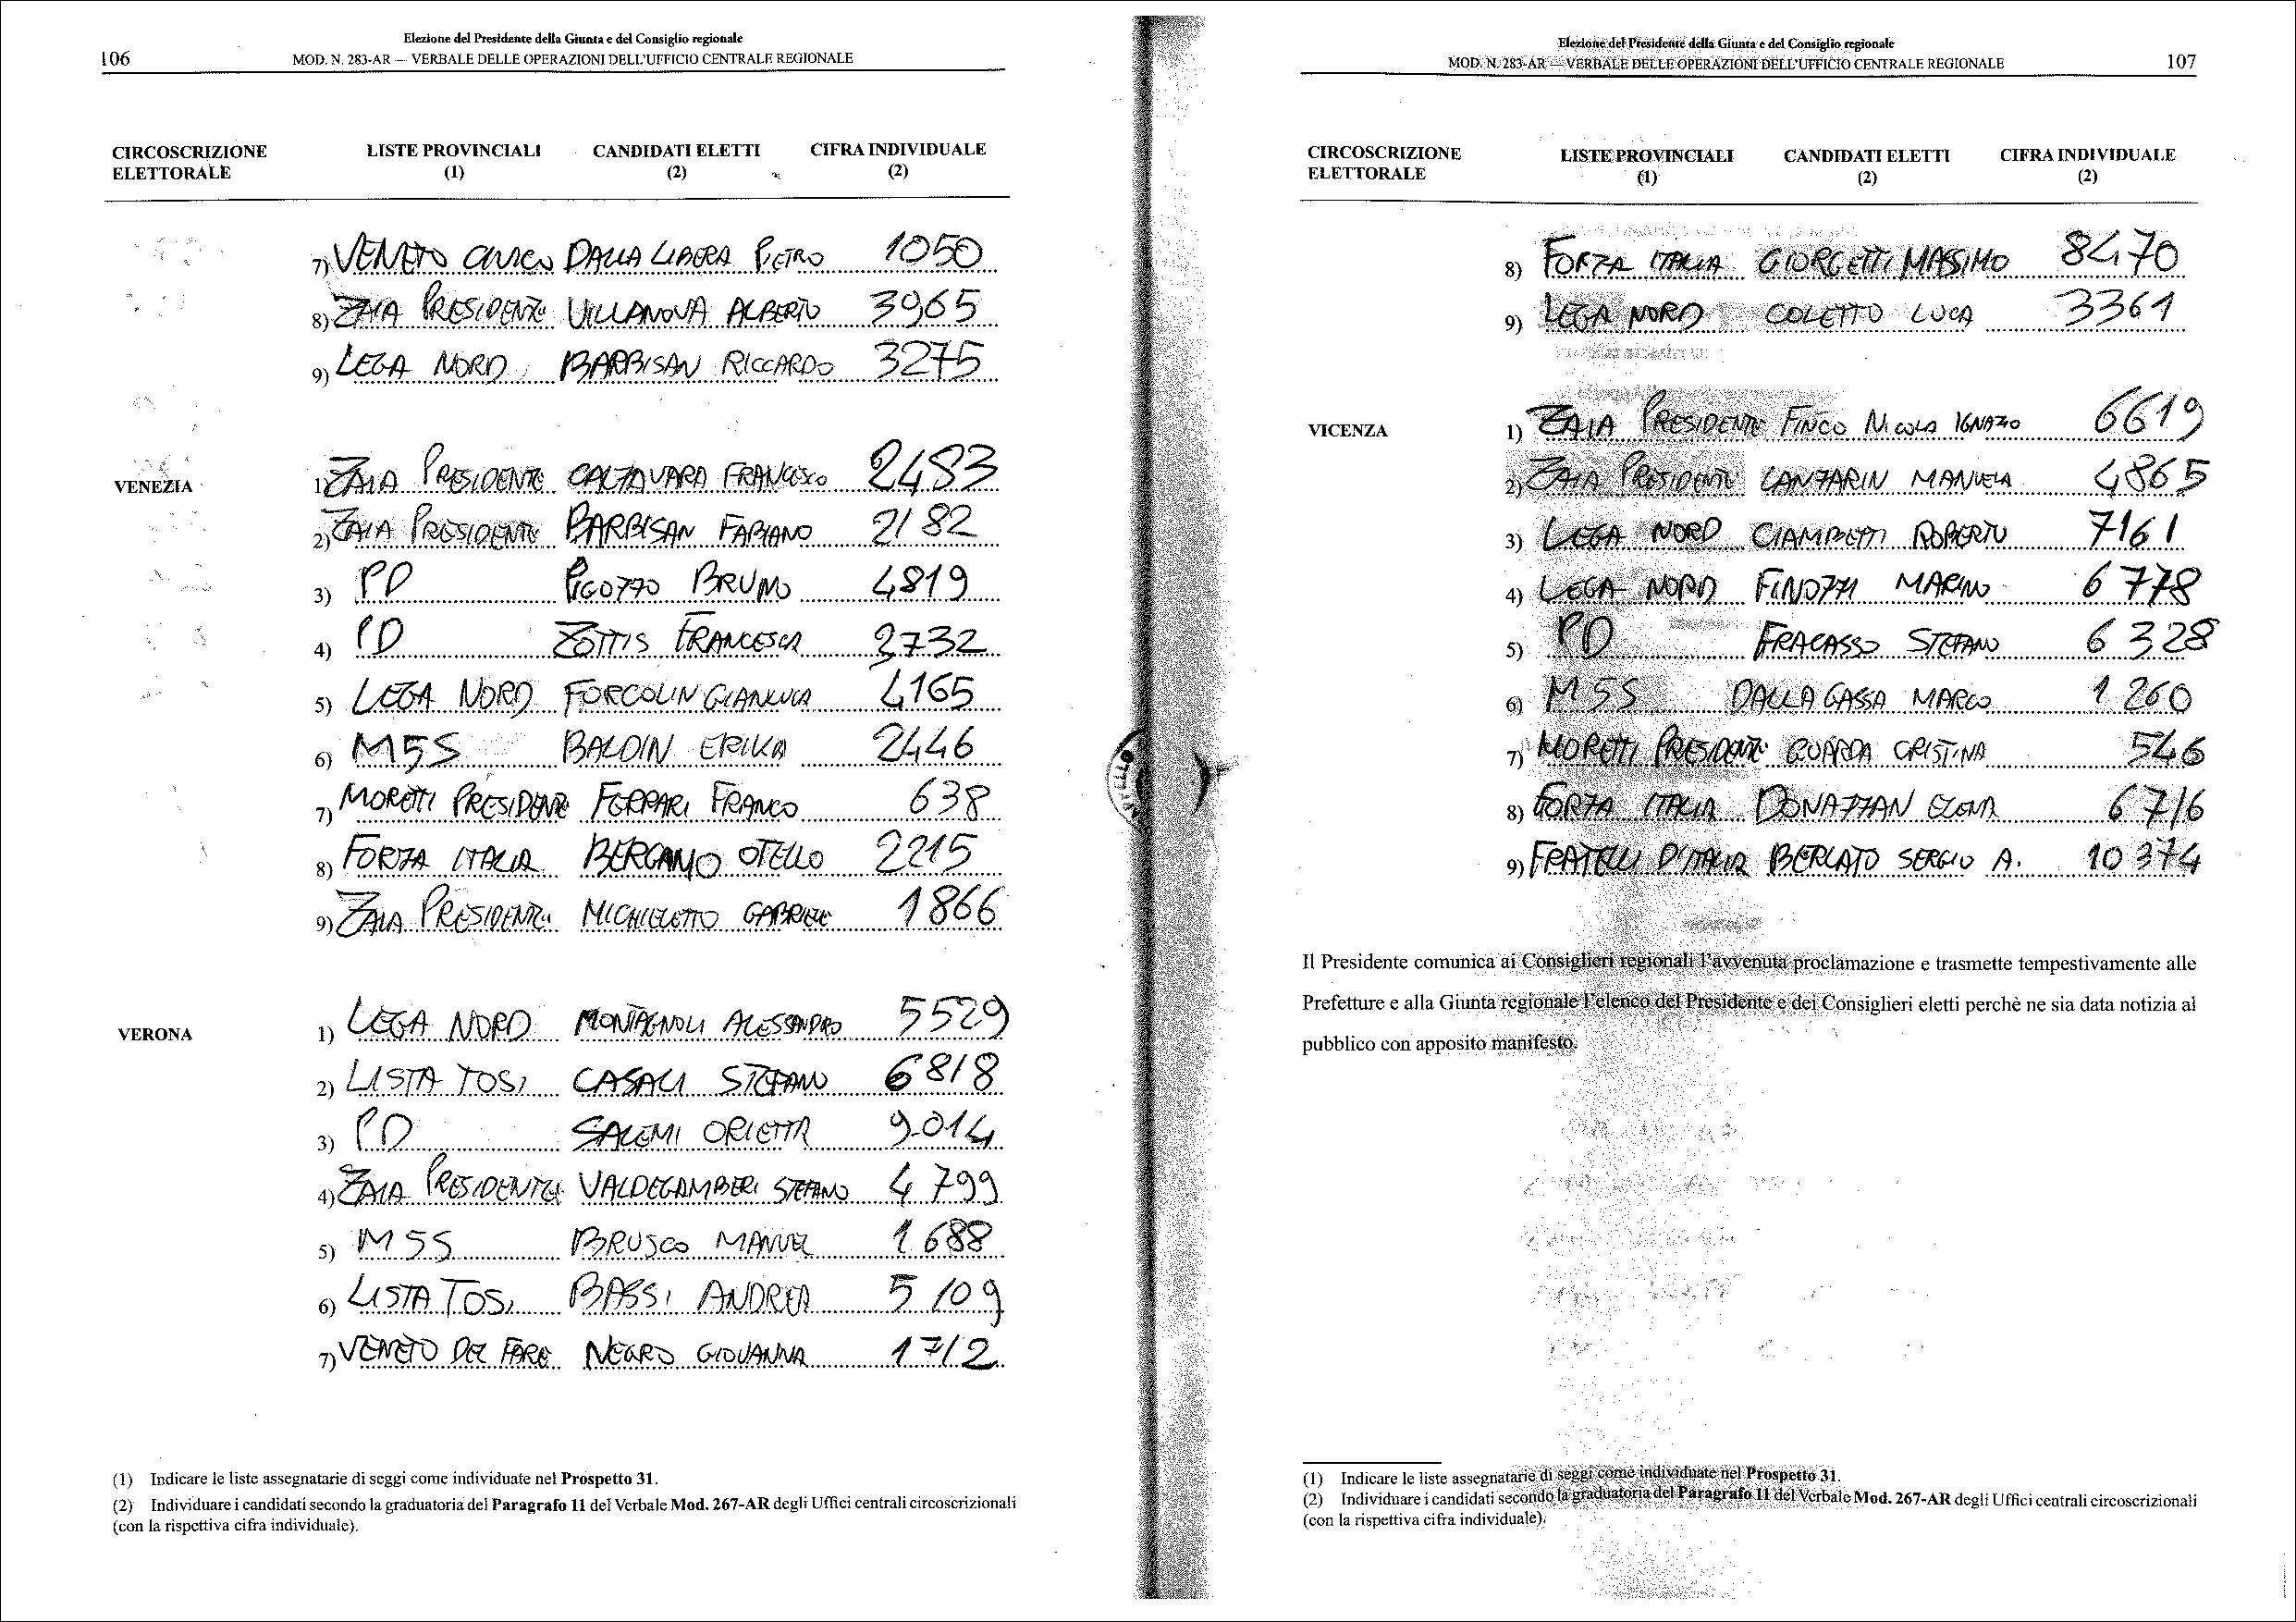 Elezione del Presidente della Giunta e del Consiglio regionale
106 MOD. N. 283-AR — VERBALE DELLE OPERAZIONI DELL'UFFICIO CENTRALE REGIONALE
CIRCOSCRIZIONE ELETTORALE LISTE PROVINCIALI (1) CANDIDATI ELETTI (2) CIFRA INDIVIDUALE (2)
7) VENETO CIVICO DALLA LIBERA PIETRO 1050
8) ZAIA PRESIDENTE VILLANOVA ALBERTO 3965
9) LEGA NORD BARBISAN RICCARDO 3275
VENEZIA 1) ZAIA PRESIDENTE CALZAVARA FRANCESCO 2483
2) ZAIA PRESIDENTE BARBISAN FABIANO 2182
3) PD PIGOZZO BRUNO 4819
4) PD ZOTTIS FRANCESCA 3732
5) LEGA NORD FORCOLIN GIANLUCA 4165
6) M5S BALDIN ERIKA 2446
7) MORETTI PRESIDENTE FERRARI FRANCO 638
8) FORZA ITALIA BERGAMO OTELLO 2215
9) ZAIA PRESIDENTE MICHIELETTO GABRIELE 1866
VERONA 1) LEGA NORD MONTAGNOLI ALESSANDRO 5529
2) LISTA TOSI CASALI STEFANO 6818
3) PD SALEMI ORIETTA 9.014
4) ZAIA PRESIDENTE VALDEGAMBERI STEFANO 4799
5) M5S BRUSCO MANUEL 1688
6) LISTA TOSI BASSI ANDREA 5109
7) VENETO DEL FARE NEGRO GIOVANNA 1712
(1) Indicare le liste assegnatarie di seggi come individuate nel Prospetto 31.
(2) Individuare i candidati secondo la graduatoria del Paragrafo 11 del Verbale Mod. 267-AR degli Uffici centrali circoscrizionali
(con la rispettiva cifra individuale).
Elezione del Presidente della Giunta e del Consiglio regionale
MOD. N. 283-AR — VERBALE DELLE OPERAZIONI DELL'UFFICIO CENTRALE REGIONALE 107
CIRCOSCRIZIONE ELETTORALE LISTE PROVINCIALI (1) CANDIDATI ELETTI (2) CIFRA INDIVIDUALE (2)
8) FORZA ITALIA GIORGETTI MASSIMO 8470
9) LEGA NORD COLETTO LUCA 3361
VICENZA 1) ZAIA PRESIDENTE FINCO NICOLA IGNAZIO 6619
2) ZAIA PRESIDENTE LANZARIN MANUELA 4865
3) LEGA NORD CIAMBETTI ROBERTO 7161
4) LEGA NORD FINOZZI MARINO 6778
5) PD FRACASSO STEFANO 6328
6) M5S DALLA GASSA MARCO 1260
7) MORETTI PRESIDENTE GUARDA CRISTINA 546
8) FORZA ITALIA DONAZZAN ELENA 6716
9) FRATELLI D'ITALIA BERLATO SERGIO A. 10374
Il Presidente comunica ai Consiglieri regionali l'avvenuta proclamazione e trasmette tempestivamente alle
Prefetture e alla Giunta regionale l'elenco del Presidente e dei Consiglieri eletti perchè ne sia data notizia al
pubblico con apposito manifesto.
(1) Indicare le liste assegnatarie di seggi come individuate nel Prospetto 31.
(2) Individuare i candidati secondo la graduatoria del Paragrafo 11 del Verbale Mod. 267-AR degli Uffici centrali circoscrizionali
(con la rispettiva cifra individuale).